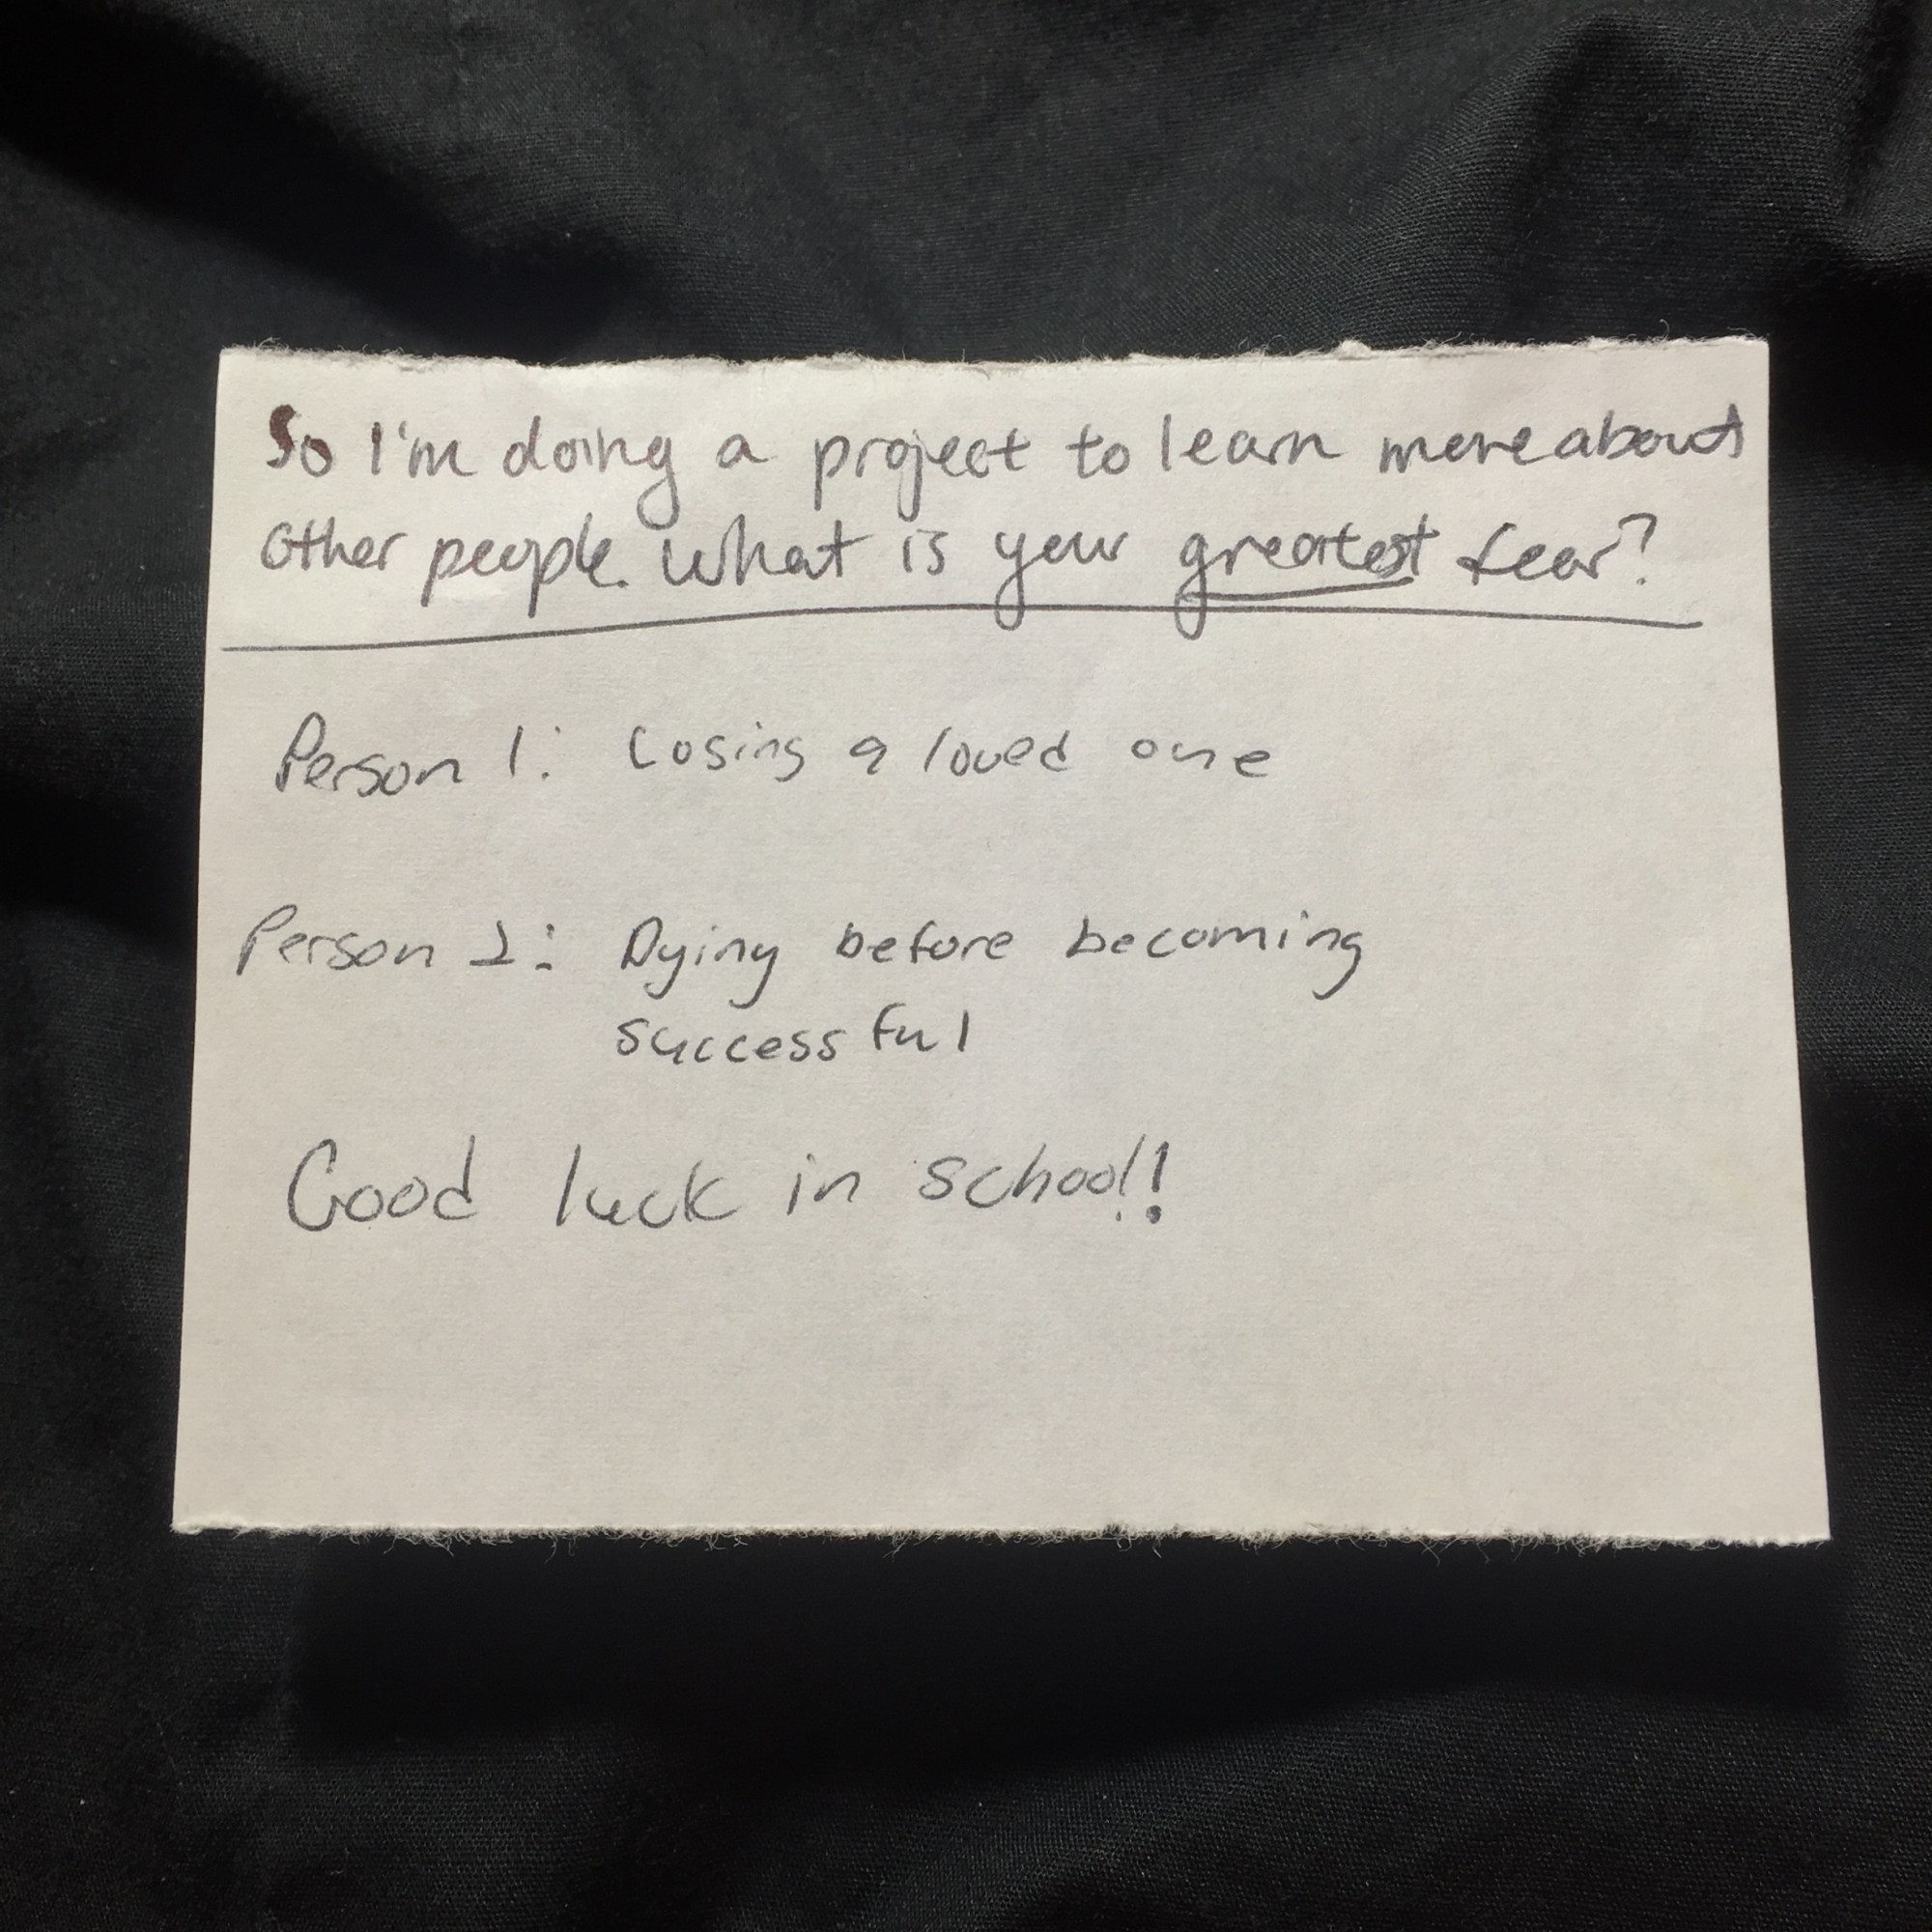 So I'm doing a project to learn more about
other people. What is your greatest fear?
Person 1: Losing a loved one
Person 2: Dying before becoming
successful
Good luck in school!